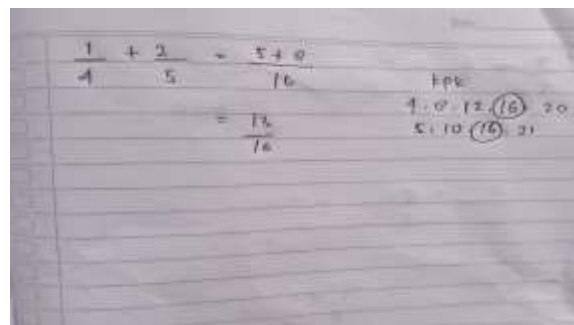 1/4 + 2/5 = 5+8/16
= 12/16
kpk
4. 8. 12. 16. 20
5. 10. 16. 21